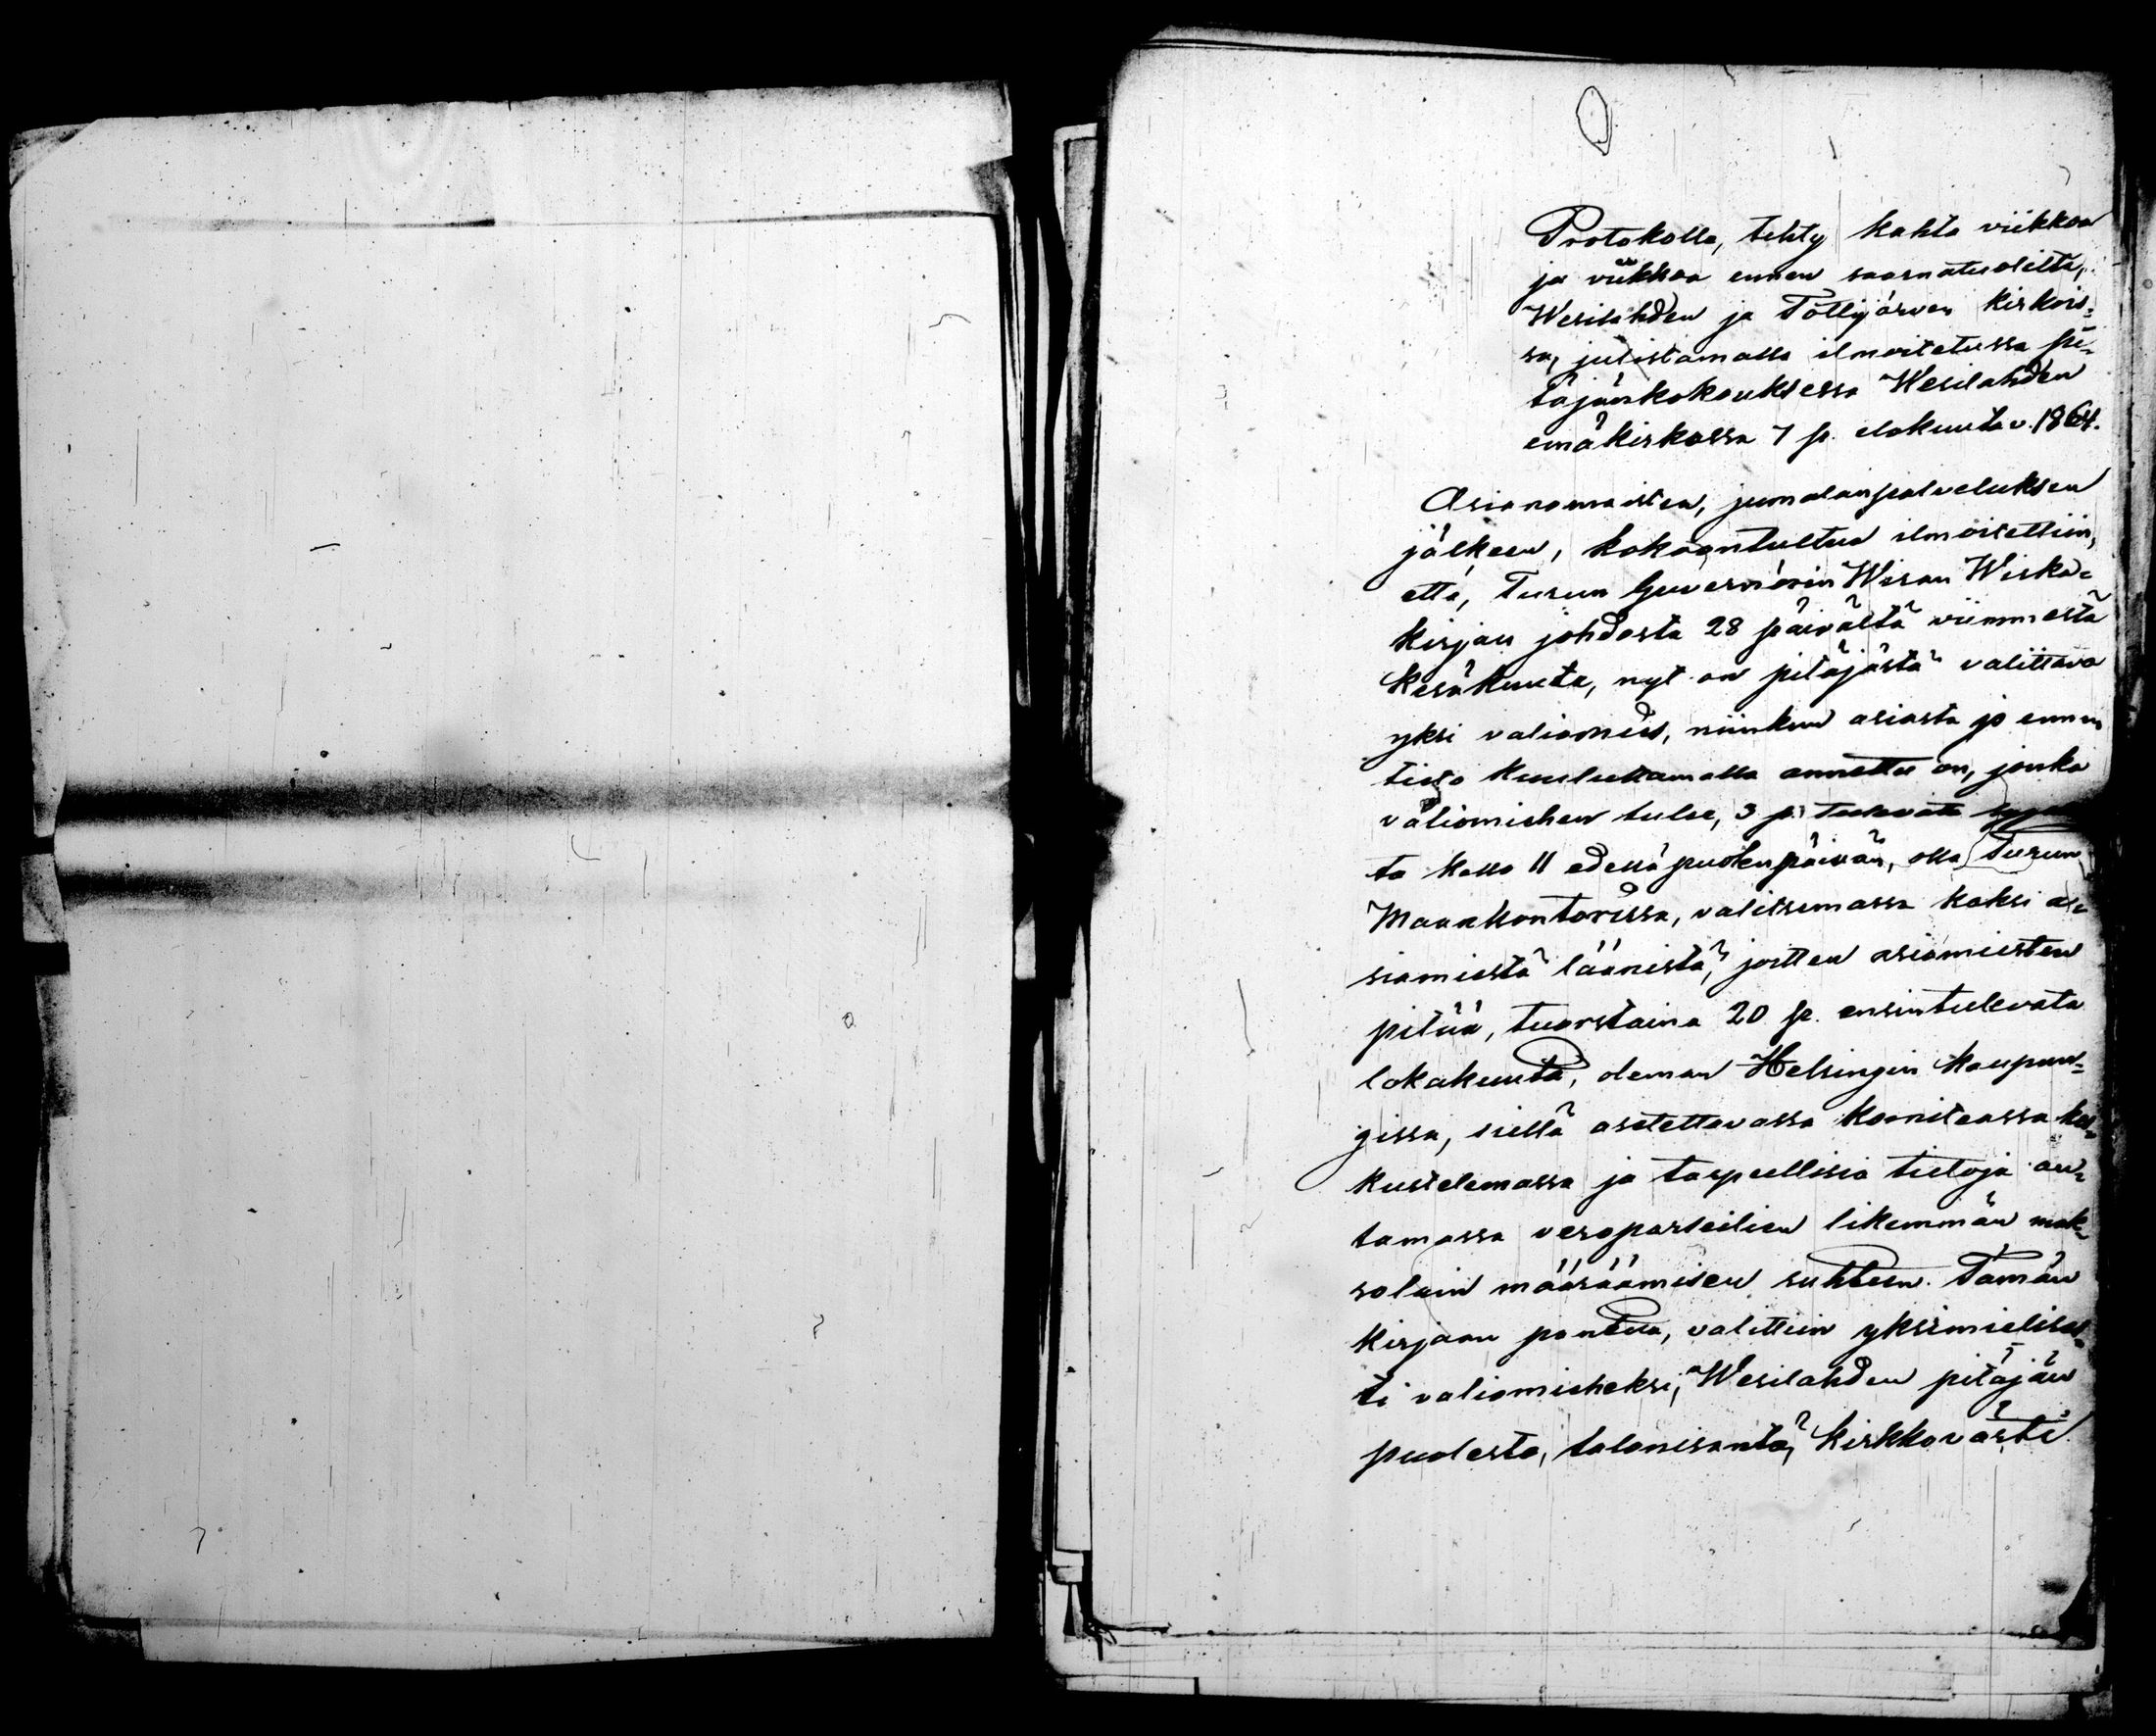 Protokolla, tehty kahta viikkoa
ja viikkoa ennen saarnatuolilta,
Wesilahden ja Töllijärven kirkois-
sa, julistamalla ilmoitetussa pi-
täjänkokouksessa Wesilahden
emäkirkossa 7 p. elokuuta v. 1864.
Asianomaisten, jumalanpalveluksen
jälkeen, kokoontultua ilmoitettiin,
että, Turun Guvernörin Wiran Wirka-
kirjan johdosta 28 päivältä viimmestä
Kesäkuuta, nyt on pitäjästä valittava
yksi valiomies, niinkuin asiasta jo ennen
tieto kuuluttamalla annettu on, jonka
valiomiehen tulee, 3 p. tulevata
ta kello 11 edellä puolenpäivän, olla Turun
Maakontorissa, valitsemassa kaksi a-
siamiestä läänistä, joitten asiamiesten
pitää, tuorstaina 20 p. ensintulevata
lokakuuta, oleman Helsingin kaupun-
gissa, siellä asetettavassa Komiteassa kes-
kustelemassa ja tarpeellisia tietoja an-
tamassa veroparseilien likemmän mak-
soluin määräämisen suhteen. Tämän
kirjaan pantua, valittiin yksimielises-
ti valiomieheksi, Wesilahden pitäjän
puolesta, talonisäntä, kirkkovärti